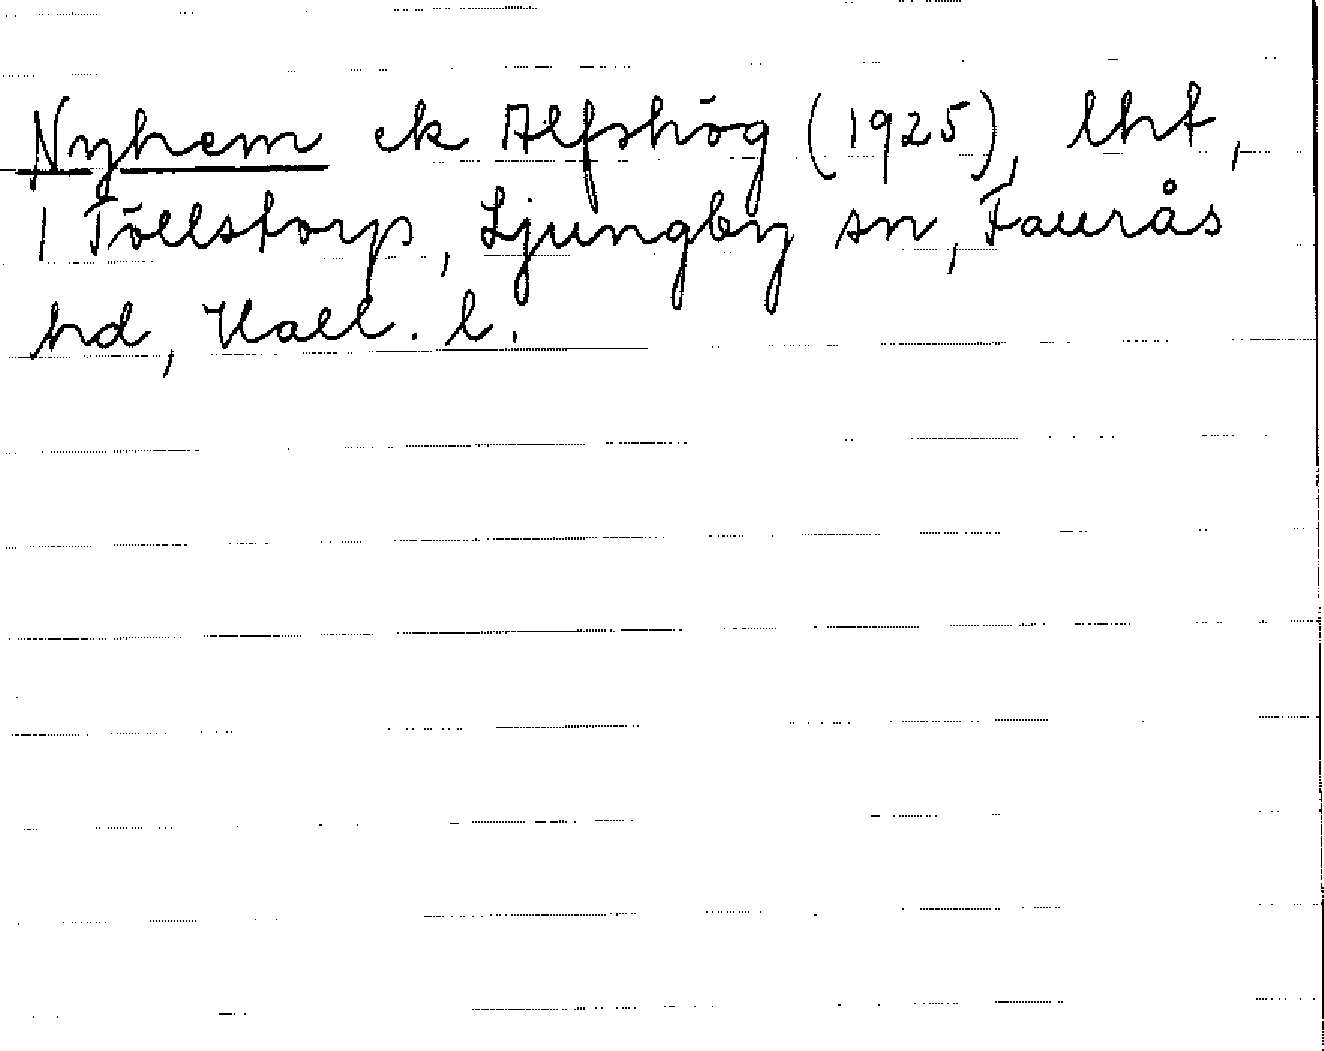 Nyhem ek Alfshög (1925), lht,
1 Töllstorp, Ljungby sn, Faurås
hd, Hall. l.